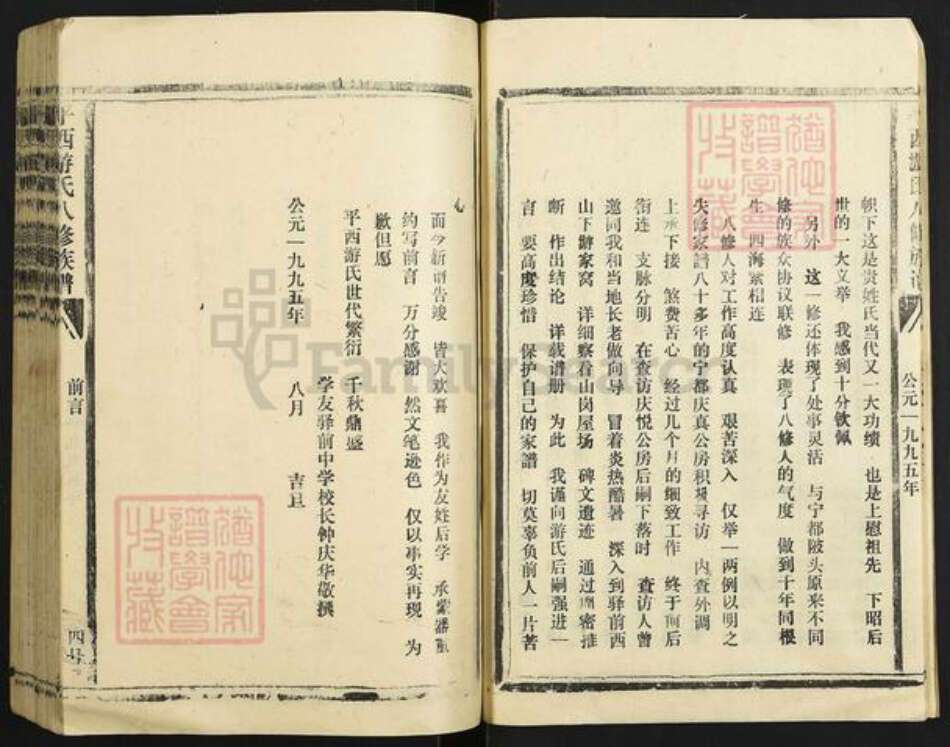 公元一九九五年
帜下这是贵姓氏当代又一大功绩 也是上慰祖先 下昭后
世的一大立举 我感到十分钦佩
另外 这一修还体现了处事灵活 与宁都陂头原来不同
修的族众协议联修 表现了八修人的气度 做到十年同根
生 四海紧相连
八修人对工作高度认真 艰苦深入 仅举一两例以明之
失修家谱八十多年的宁都庆真公房积极寻访 内查外调
上承下接 煞费苦心 经过几个月的细致工作 终于前后
衔连 支脉分明 在查访庆悦公房后嗣下落时 查访人曾
邀同我和当地长老做向导 冒着炎热酷暑 深入到驿前西
山下游家窝 详细察看山岗屋场 碑文遗迹 通过周密推
断 作出结论 详载谱册 为此 我谨向游氏后嗣强进一
言 要高度珍惜 保护自己的家谱 切莫辜负前人一片苦
心
而今新谱告竣 皆大欢喜 我作为友姓后学 承蒙器重
约写前言 万分感谢 然文笔逊色 仅以事实再现 为
歉但愿
平西游氏世代繁衍 千秋鼎盛
学友驿前中学校长钟庆华敬撰
公元一九九五年 八月 吉旦
平西游氏八修族谱
前言
FamilySearch